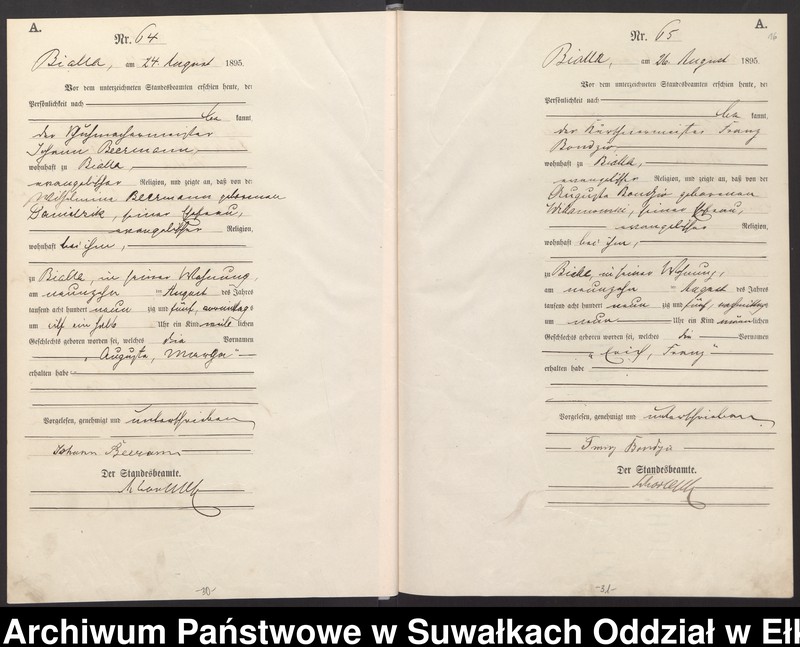 A.
Nr. 64
Bialla, am 24. August 1895.
Vor dem unterzeichneten Standesbeamten erschien heute, der
Persönlichkeit nach
be kannt,
der Schuhmachermeister
Johann Beermann,
wohnhaft zu Bialla,
evangelischer Religion, und zeigte an, daß von der
Wilhelmine Beermann geborenen
seiner Ehefrau,
evangelischer Religion,
wohnhaft bei ihm,
zu Bialla, in seiner Wohnung,
am neunzehn ten August des Jahres
tausend acht hundert neun zig und fünf, vormittags
um elf ein halb Uhr ein Kind weib lichen
Geschlechts geboren worden sei, welches die Vornamen
Auguste,
erhalten habe
Vorgelesen, genehmigt und unterschrieben
Johann Beermann
Der Standesbeamte.
-30-
A.
16
Nr. 65
Bialla, am 26. August 1895.
Vor dem unterzeichneten Standesbeamten erschien heute, der
Persönlichkeit nach
be kannt,
der Kürschnermeister Franz
Bondzio,
wohnhaft zu Bialla,
evangelischer Religion, und zeigte an, daß von der
Auguste Bondzio geborenen
seiner Ehefrau,
evangelischer Religion,
wohnhaft bei ihm,
zu Bialla, in seiner Wohnung,
am neunzehn ten August des Jahres
tausend acht hundert neun zig und fünf, nachmittags
um neun Uhr ein Kind männ lichen
Geschlechts geboren worden sei, welches die Vornamen
„Erich, Franz"
erhalten habe
Vorgelesen, genehmigt und unterschrieben
Franz Bondzio
Der Standesbeamte.
-31-
Archiwum Państwowe w Suwałkach Oddział w Ełk